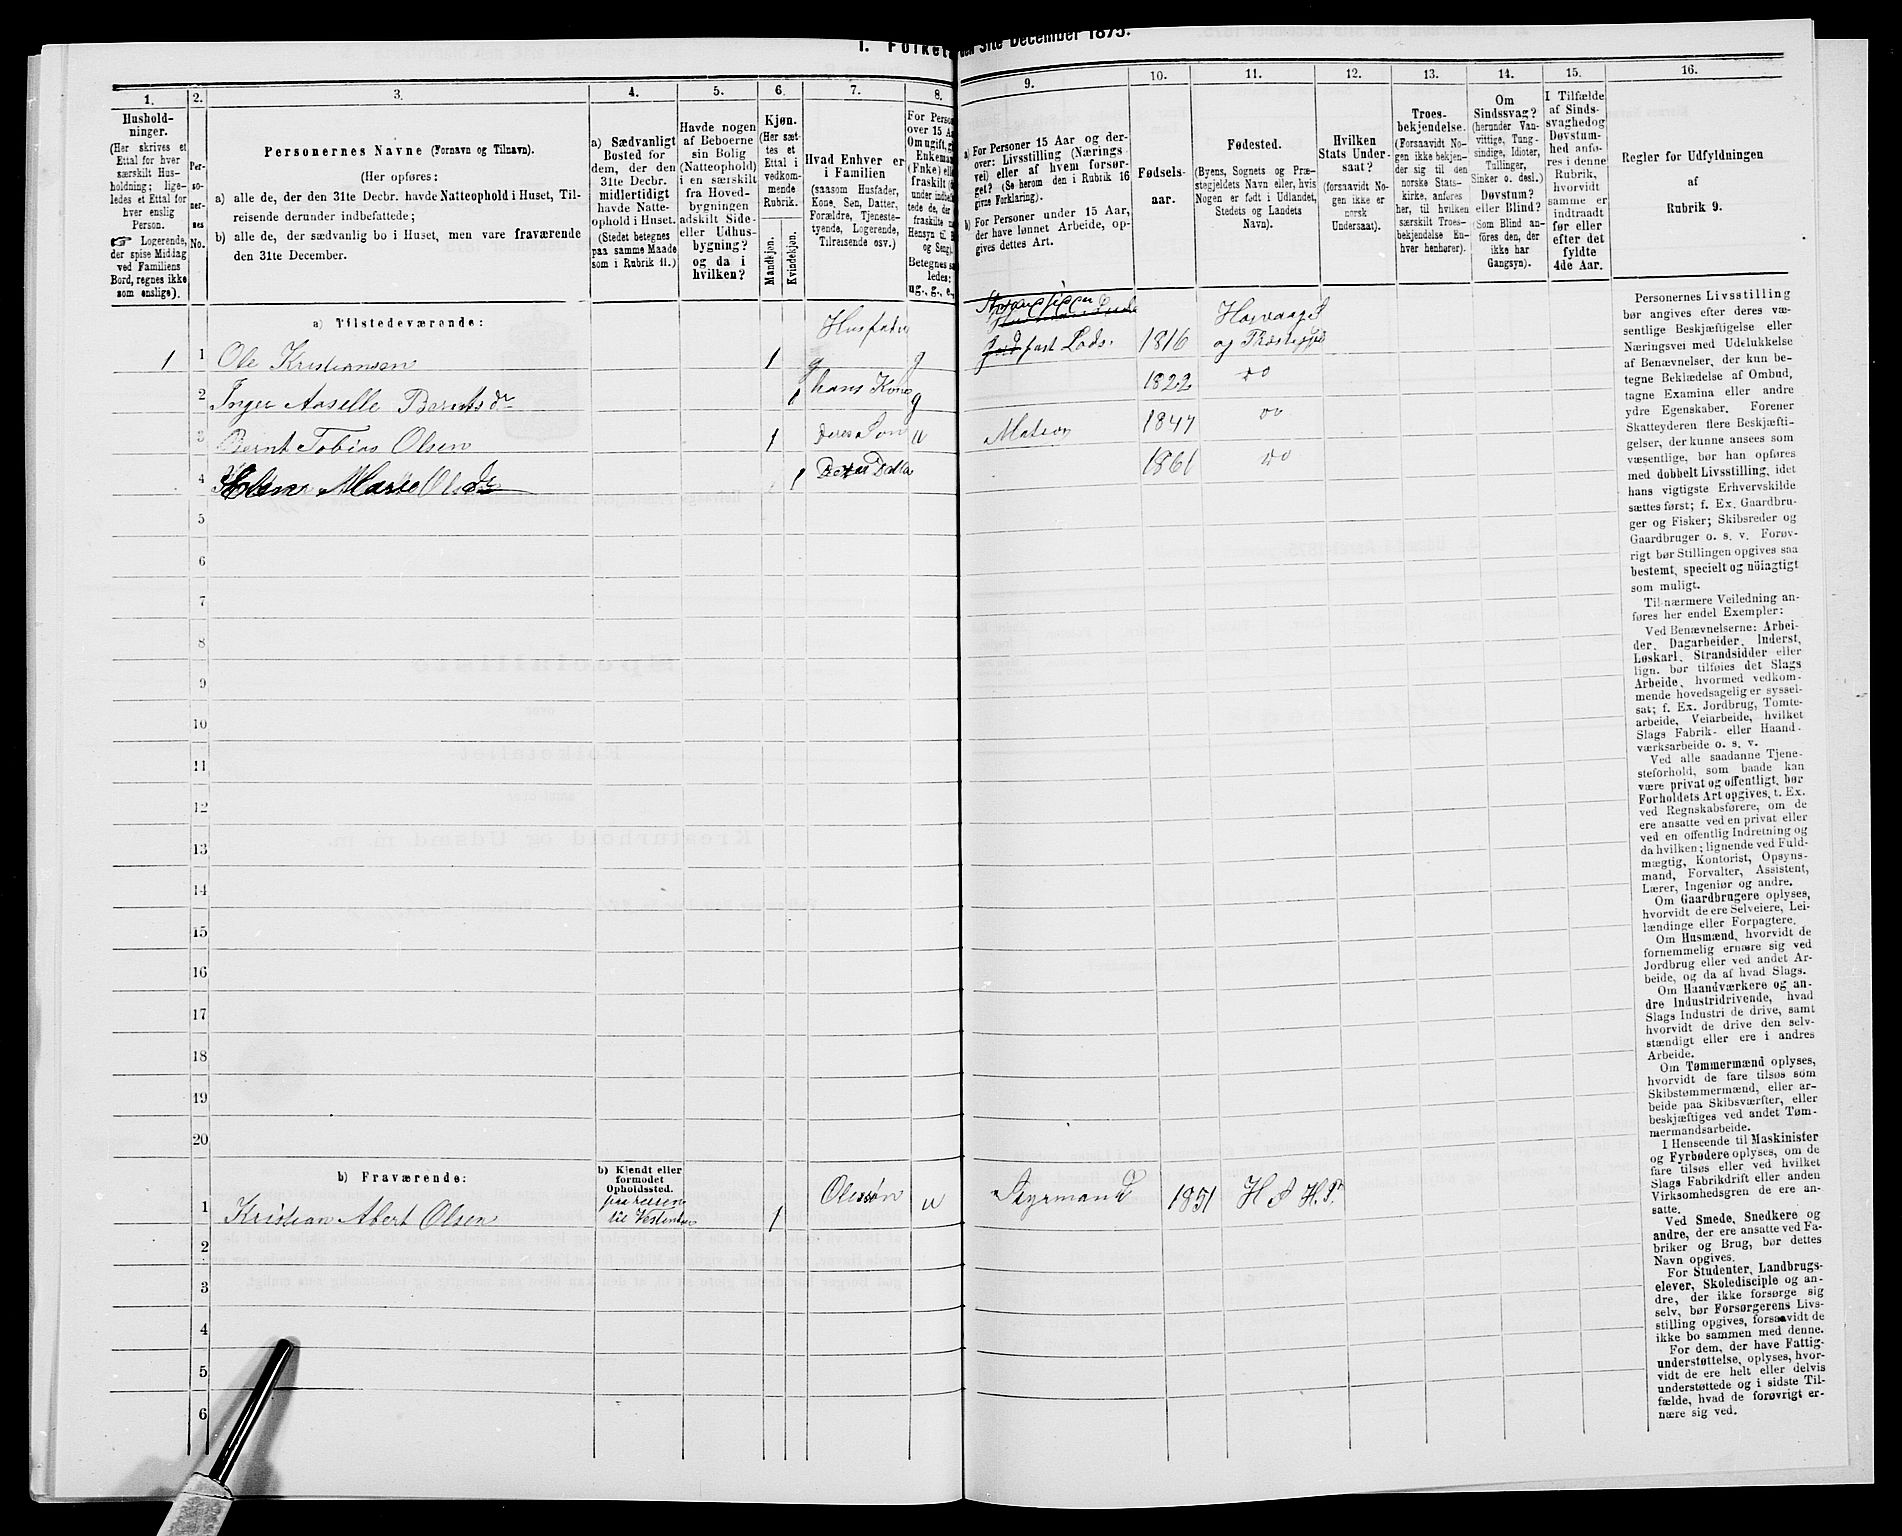 I. Folket den 31te December 1875.
1. 2. 3. 4. 5. 6. 7. 8.
Hushold-
ninger.
(Her skrives et
Ettal for hver
særskilt Hus-
holdning; lige-
ledes et Ettal for
hver enslig
Person.
☞ Logerende,
der spise Middag
ved Familiens
Bord, regnes ikke
som enslige).
Per-
so-
ner-
nes
No.
Personernes Navne (Fornavn og Tilnavn).
(Her opføres:
a) alle de, der den 31te Decbr. havde Natteophold i Huset, Til-
reisende derunder indbefattede;
b) alle de, der sædvanlig bo i Huset, men vare fraværende
den 31te December.
a) Sædvanligt
Bosted for
dem, der den
31te Decbr.
midlertidigt
havde Natte-
ophold i Huset.
(Stedet betegnes
paa samme Maade
som i Rubrik 11.)
Havde nogen
af Beboerne
sin Bolig
(Natteophold)
i en særskilt
fra Hoved-
bygningen
adskilt Side-
eller Udhus-
bygning?
og da i
hvilken?
Kjøn.
(Her sæt-
tes et
Ettal i
vedkom-
mende
Rubrik.
Mandkjøn.
Kvindekjøn.
Hvad Enhver er
i Familien
(saasom Husfader,
Kone, Søn, Datter,
Forældre, Tjeneste-
tyende, Logerende,
Tilreisende osv.)
For Person
over 15 Aa
Om ugift, gi
Enkeman
(Enke) ell
fraskilt (
under indbe
tede de, der
fraskilte
Hensyn til B
og Seng).
Betegnes sa
ledes:
ug., g., e.,
a) Tilstedeværende:
1 1 Ole Kristiansen 1 Husfader g
2 Inger Aaselle Berntsdr 1 hans Kone g
3 Bernt Tobias Olsen 1 deres Søn u
4 Marie Olsdr 1
5
6
7
8
9
10
11
12
13
14
15
16
17
18
19
20
b) Fraværende:
b) Kjendt eller
formodet
Opholdssted.
1 Kristian Abert Olsen paa reisen
til Vestindien 1 Olessøn u
2
3
4
5
6
9. 10. 11. 12. 13. 14. 15. 16.
a) For Personer 15 Aar og der-
over: Livsstilling (Nærings-
vei) eller af hvem forsør-
get? (Se herom den i Rubrik 16
givne Forklaring).
b) For Personer under 15 Aar,
der have lønnet Arbeide, op-
gives dettes Art.
Fødsels-
aar.
Fødested.
(Byens, Sognets og Præ-
stegjeldets Navn eller, hvis
Nogen er født i Udlandet,
Stedets og Landets
Navn).
Hvilken
Stats Under-
saat?
(forsaavidt No-
gen ikke er
norsk
Undersaat).
Troes-
bekjendelse.
(Forsaavidt No-
gen ikke bekjen-
der sig til den
norske Stats-
kirke, anføres
her, til hvilken
særskilt Troes-
bekjendelse En-
hver henhører).
Om
Sindssvag?
(herunder Van-
vittige, Tung-
sindige, Idioter,
Tullinger,
Sinker o. desl.)
Døvstum?
eller Blind?
(Som Blind an-
føres den, der
ikke har
Gangsyn).
I Tilfælde
af Sinds-
svaghed og
Døvstum-
hed anfø-
res i denne
Rubrik,
hvorvidt
samme er
indtraadt
før eller
efter det
fyldte
4de Aar.
Regler for Udfyldningen
af
Rubrik 9.
fast Lods. 1816
1822 do
Matros 1847 do
1861 do
Styrmand 1851 H S H. P.
Personernes Livsstilling
bør angives efter deres væ-
sentlige Beskjæftigelse eller
Næringsvei med Udelukkelse
af Benævnelser, der kun be-
tegne Beklædelse af Ombud,
tagne Examina eller andre
ydre Egenskaber. Forener
Skatteyderen flere Beskjæfti-
gelser, der kunne ansees som
væsentlige, bør han opføres
med dobbelt Livsstilling, idet
hans vigtigste Erhvervskilde
sættes først; f. Ex. Gaardbru-
ger og Fisker; Skibsreder og
Gaardbruger o. s. v. Forøv-
rigt bør Stillingen opgives saa
bestemt, specielt og nöiagtigt
som muligt.
Til nærmere Veiledning an-
føres her endel Exempler:
Ved Benævnelserne: Arbei-
der, Dagarbeider, Inderst,
Løskarl, Strandsidder eller
lign. bør tilføies det Slags
Arbeide, hvormed vedkom-
mende hovedsagelig er syssel-
sat; f. Ex. Jordbrug, Tomte-
arbeide, Veiarbeide, hvilket
Slags Fabrik- eller Haand-
værksarbeide o. s. v.
Ved alle saadanne Tjene-
steforhold, som baade kan
være privat og offentligt, bør
Forholdets Art opgives, t. Ex.
ved Regnskabsførere, om de
ere ansatte ved en privat eller
ved en offentlig Indretning og
da hvilken; lignende ved Fuld-
mægtig, Kontorist, Opsyns-
mand, Forvalter, Assistent,
Lærer, Ingeniør og andre.
Om Gaardbrugere oplyses,
hvorvidt de ere Selveiere, Lei-
lændinge eller Forpagtere.
Om Husmænd, hvorvidt de
fornemmelig ernære sig ved
Jordbrug eller ved andet Ar-
beide, og da af hvad Slags.
Om Haandværkere og an-
dre Industridrivende, hvad
Slags Industri de drive, samt
hvorvidt de drive den selv-
stændigt eller ere i andres
Arbeide.
Om Tømmermænd oplyses,
hvorvidt de fare tilsøs som
Skibstømmermænd, eller ar-
beide paa Skibsværfter, eller
beskjæftiges ved andet Tøm-
mermandsarbeide.
I Henseende til Maskinister
og Fyrbødere oplyses, om de
fare tilsøs eller ved hvilket
Slags Fabrikdrift eller anden
Virksomhedsgren de ere an-
satte.
Ved Smede, Snedkere og
andre, der ere ansatte ved Fa-
briker og Brug, bør dettes
Navn opgives.
For Studenter, Landbrugs-
elever, Skoledisciple og an-
dre, der ikke forsørge sig
selv, bør Forsørgerens Livs-
stilling opgives, forsaavidt de
ikke bo sammen med denne.
For dem, der have Fattig-
understøttelse, oplyses, hvor-
vidt de ere helt eller delvis
understøttede og i sidste Til-
fælde, hvad de forøvrigt er-
nære sig ved.